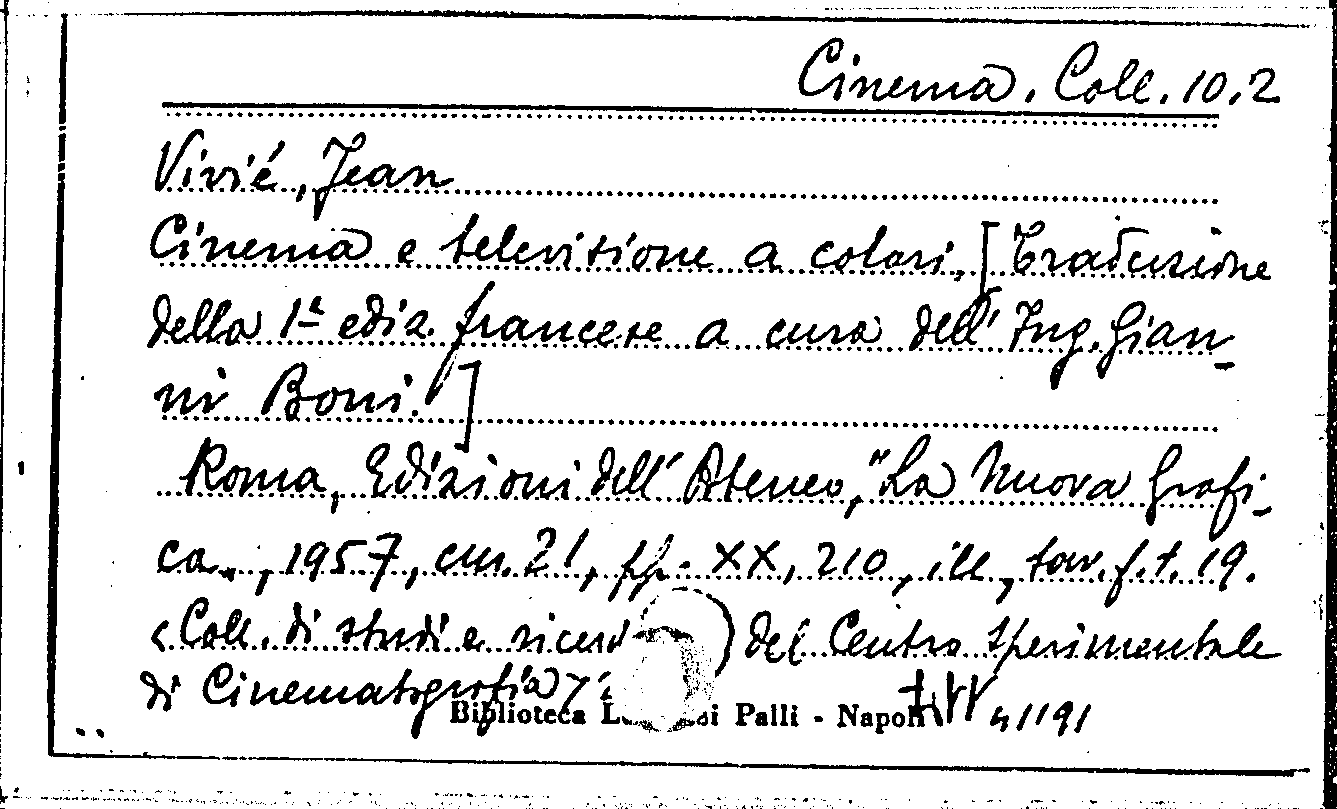 Cinema. Coll. 10.2
Vivié, Jean
Cinema e televisione a colori, [Traduzione
della 1ª ediz. francese a cura dell' Ing. Gian-
ni Boni.]
Roma, Edizioni dell' Ateneo, "La Nuova Grafi-
ca", 1957, cm. 21, pp. XX, 210, ill., tav. f. t. 19.
<Coll. di studi e del Centro Sperimentale
di Cinematografia>
Biblioteca Palli - Napoli 41191